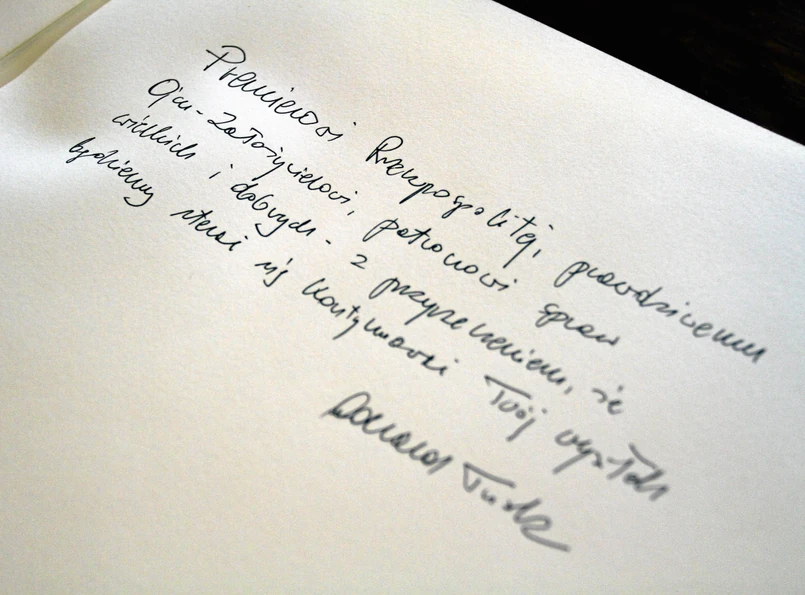 Premierowi Rzeczpospolitej, prawdziwemu
Ojcu-Założycielowi, patronowi spraw
wielkich i dobrych - z przyrzeczeniem, że
będziemy starać się kontynuować Twój wysiłek
Donald Tusk